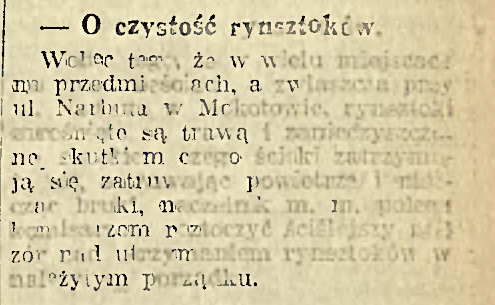 — O czystość rynsztoków.
Wobec tego, że w wielu miejscac
na przedmieściach, a zwłaszcza przy
ul. Narbuta w Mokotowie, rynsztoki
zarośnięte są trawą i zanieczyszczo
ne, skutkiem czego ścieki zatrzymu
ją się, zatruwając powietrze i nisz
cząc bruki, naczelnik m. m. polecił
komisarzom roztoczyć ściślejszy nad
zór nad utrzymaniem rynsztoków w
należytym porządku.